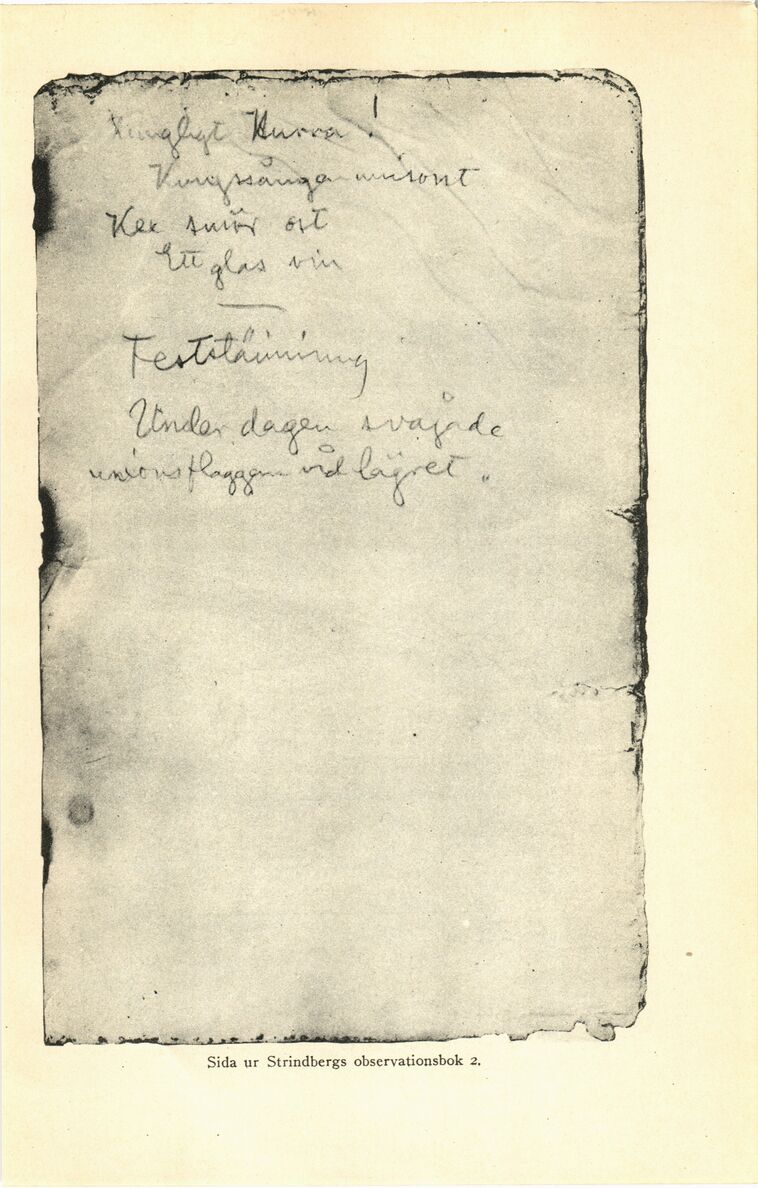 Kungligt Hurra!
Kungssången unisont
Kex smör ost
Ett glas vin
Feststämning
Under dagen svajade
unionsflaggan vid lägret „
Sida ur Strindbergs observationsbok 2.